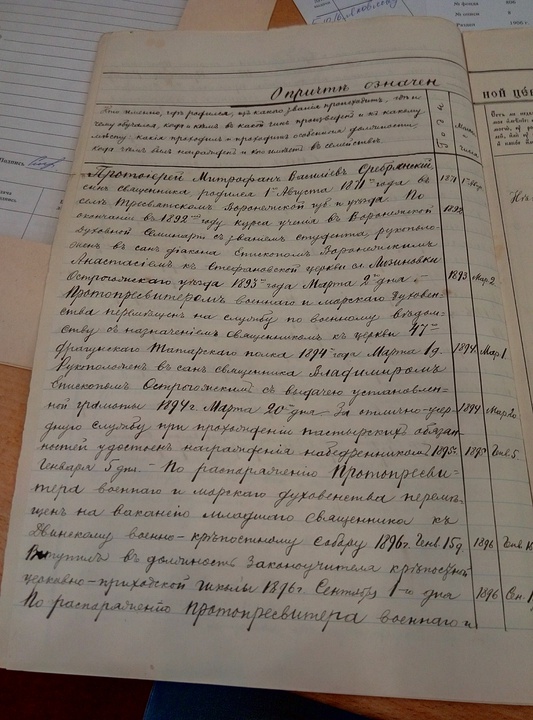 О причтѣ означен
ной це
Кто именно, гдѣ родился, изъ какого званія происходитъ, гдѣ и
чему обучался, когда и кѣмъ въ какой чинъ произведенъ и къ какому
мѣсту, какія проходилъ и проходитъ особенныя должности,
когда чѣмъ былъ награжденъ и кого имѣетъ въ семействѣ.
Годъ.
Протоіерей Митрофанъ Васильевъ Сребрянскій,
сынъ священника, родился 1го Августа 1871 года въ
селѣ Трехсвятскомъ Воронежской губ. и уѣзда. По
окончаніи въ 1892мъ году курса ученія въ Воронежской
Духовной Семинаріи съ званіемъ студента рукополо-
женъ въ санъ діакона Епископомъ Воронежскимъ
Анастасіемъ къ Стефановской церкви сл. Лизиновки
Острогожскаго уѣзда 1893го года Марта 2го дня. –
Протопресвитеромъ военнаго и морскаго духовен-
ства перемѣщенъ на службу по военному вѣдом-
ству съ назначеніемъ священникомъ къ церкви 47го
драгунскаго Татарскаго полка 1894го года Марта 1 д.
Рукоположенъ въ санъ священника Владиміромъ
Епископомъ Острогожскимъ съ выдачею установлен-
ной грамоты 1894 г. Марта 20го дня. За отлично-усер-
дную службу при прохожденіи пастырскихъ обязан-
ностей удостоенъ награжденія набедренникомъ 1895 г.
Генваря 5 дня. – По распоряженію Протопресви-
тера военнаго и морскаго духовенства перемѣ-
щенъ на вакансію младшаго священника къ
Двинскому военно-крѣпостному Собору 1896 г. Генв. 15 д.
Вступилъ въ должность Законоучителя крѣпостной
церковно-приходской школы 1896 г. Сентября 1-го дня
По распоряженію Протопресвитера военнаго и
1871
1892
1893 Мар. 2
1894 Мар. 1.
1894 Мар. 20
1895 Генв. 5.
1896 Генв.
1896 Сен. 1